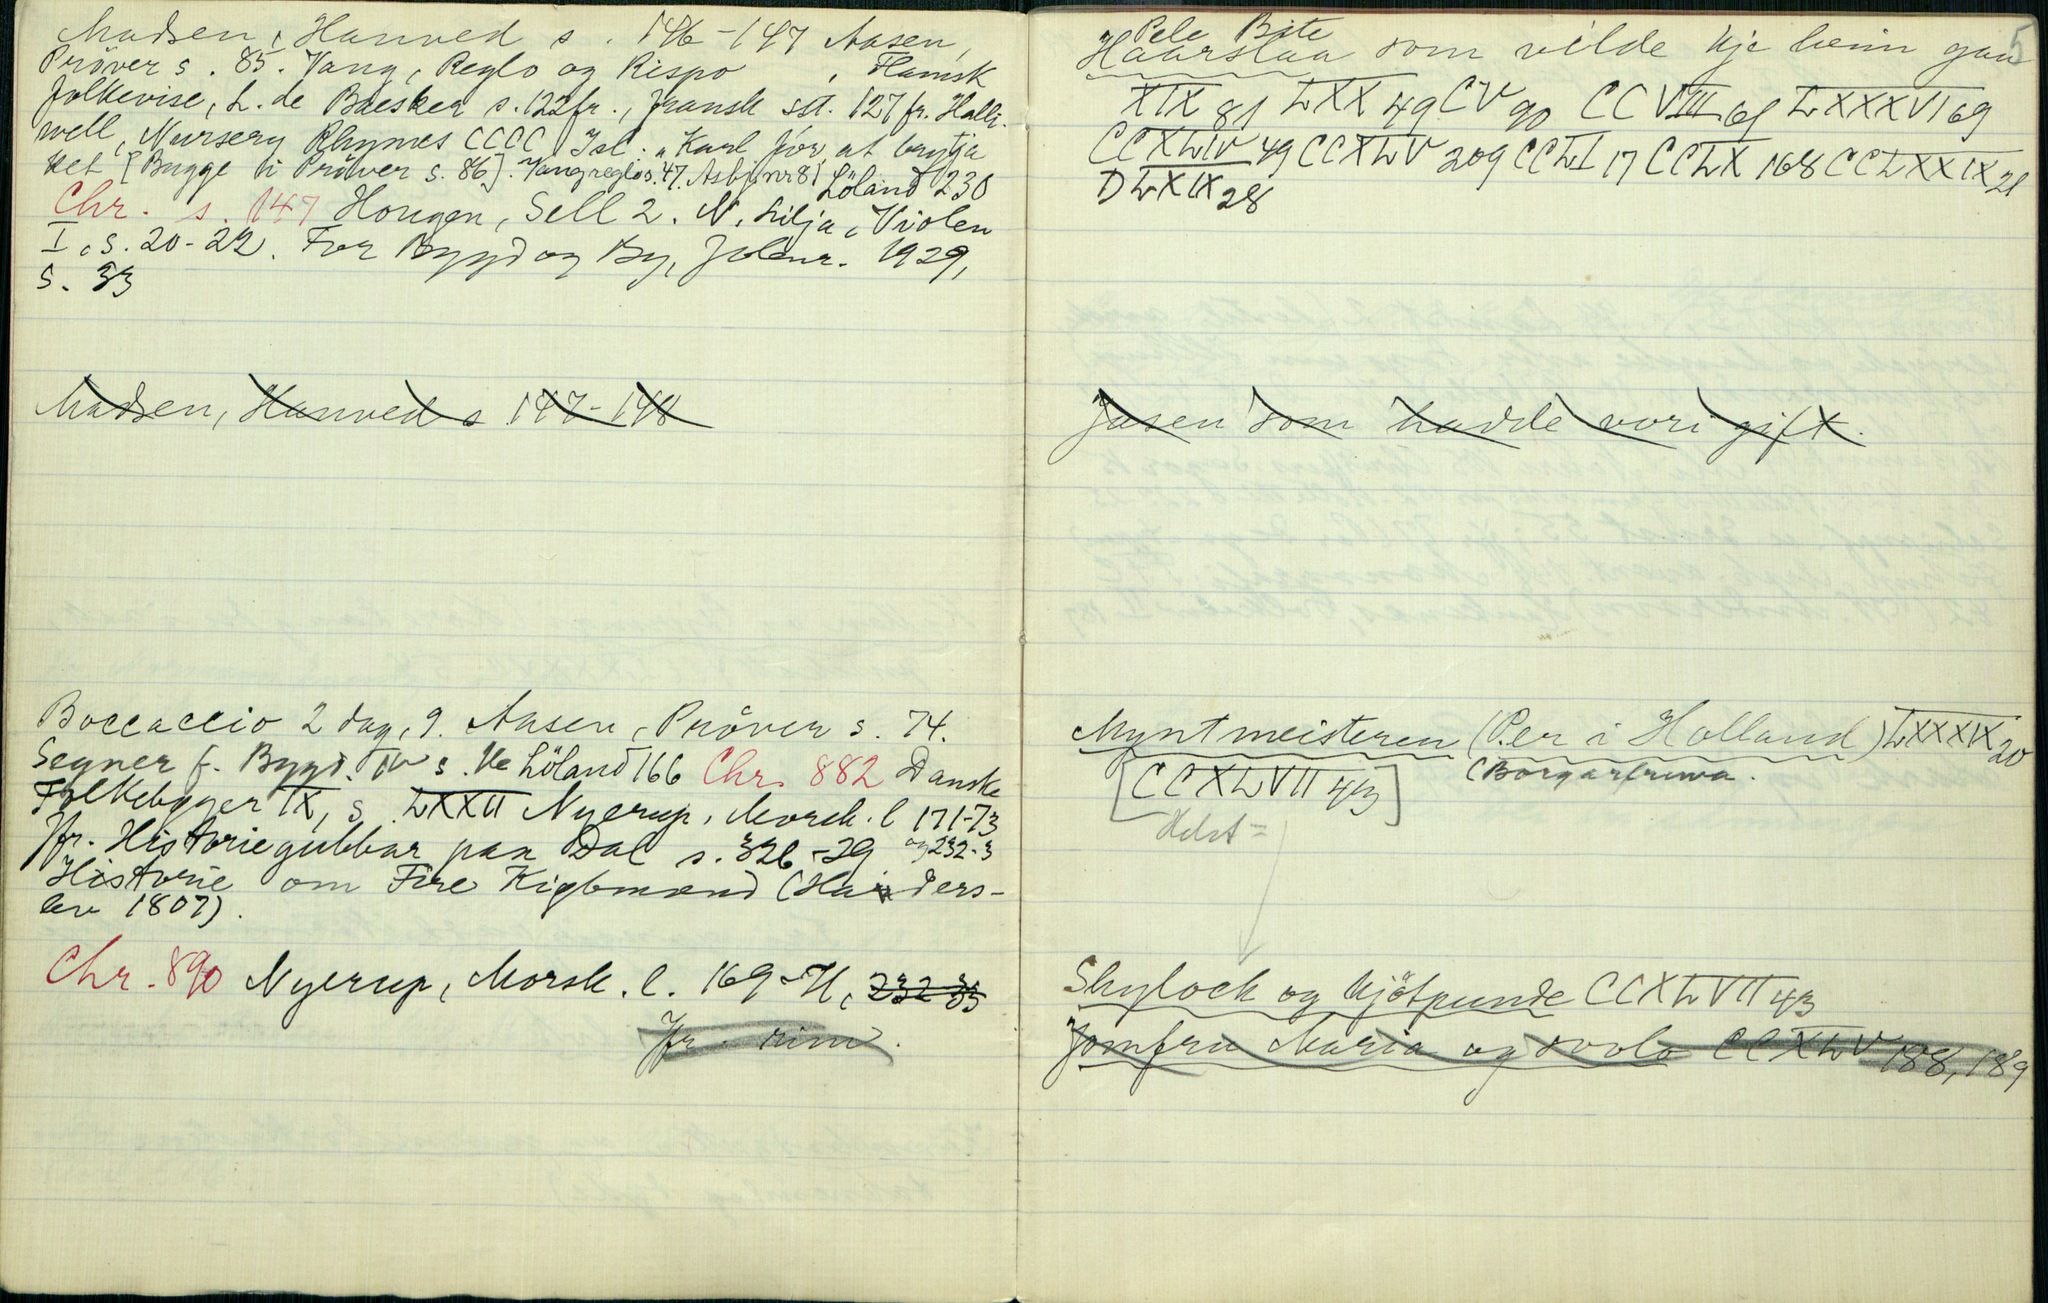 Madsen, Hanved s. 146-147 Aasen,
Prøver s. 85. Vang, Reglo og Rispo, Flamsk
folkevise, L. de Baesker s. 122 fr., fransk sst. 127 fr. Halli-
well, Nursery Rhymes CCCC Isl. „Karl fór at brytja
ket [Bugge i Prøver s. 86]. Vang reglo s. 47. Asbj. nr 81 Löland 230
Chr. s. 147 Hougen, Sell 2. N. Lilja, Violen
I, s. 20-22. For Bygd og By, Jolenr. 1929,
s. 33
Madsen, Hanved s. 147-148
Boccaccio 2 dag, 9. Aasen, Prøver s. 74.
Segner f. Bygd. IV s. Löland 166 Chr. 882 Danske
Folkebøger IX, s. LXXII Nyerup, Morsk. l 171-73
og 232-3
Jfr. Historiegubbar paa Dal s. 326-29
Historie om Fire Kiøbmænd (Haders-
lev 1807).
Chr. 890 Nyerup, Morsk. l. 169-71, 232-33
Jfr. rim.
5
Pele Bite
Haarslaa som vilde kje heim gaa
XIX 81 LXX 49 CV 90 CCVIII 61 LXXXVI 69
CCXLIV 49 CCXLV 209 CCLI 17 CCLX 168 CCLXXIX 21
DLXIX 28
Jasen som hadde vori gift.
Myntmeisteren (Per i Holland) LXXXIX 20
(Borgarfruva.
[CCXLVII 43]
Shylock og kjötpunde CCXLVII 43
Jomfru Maria og svola CCXLV 188, 189